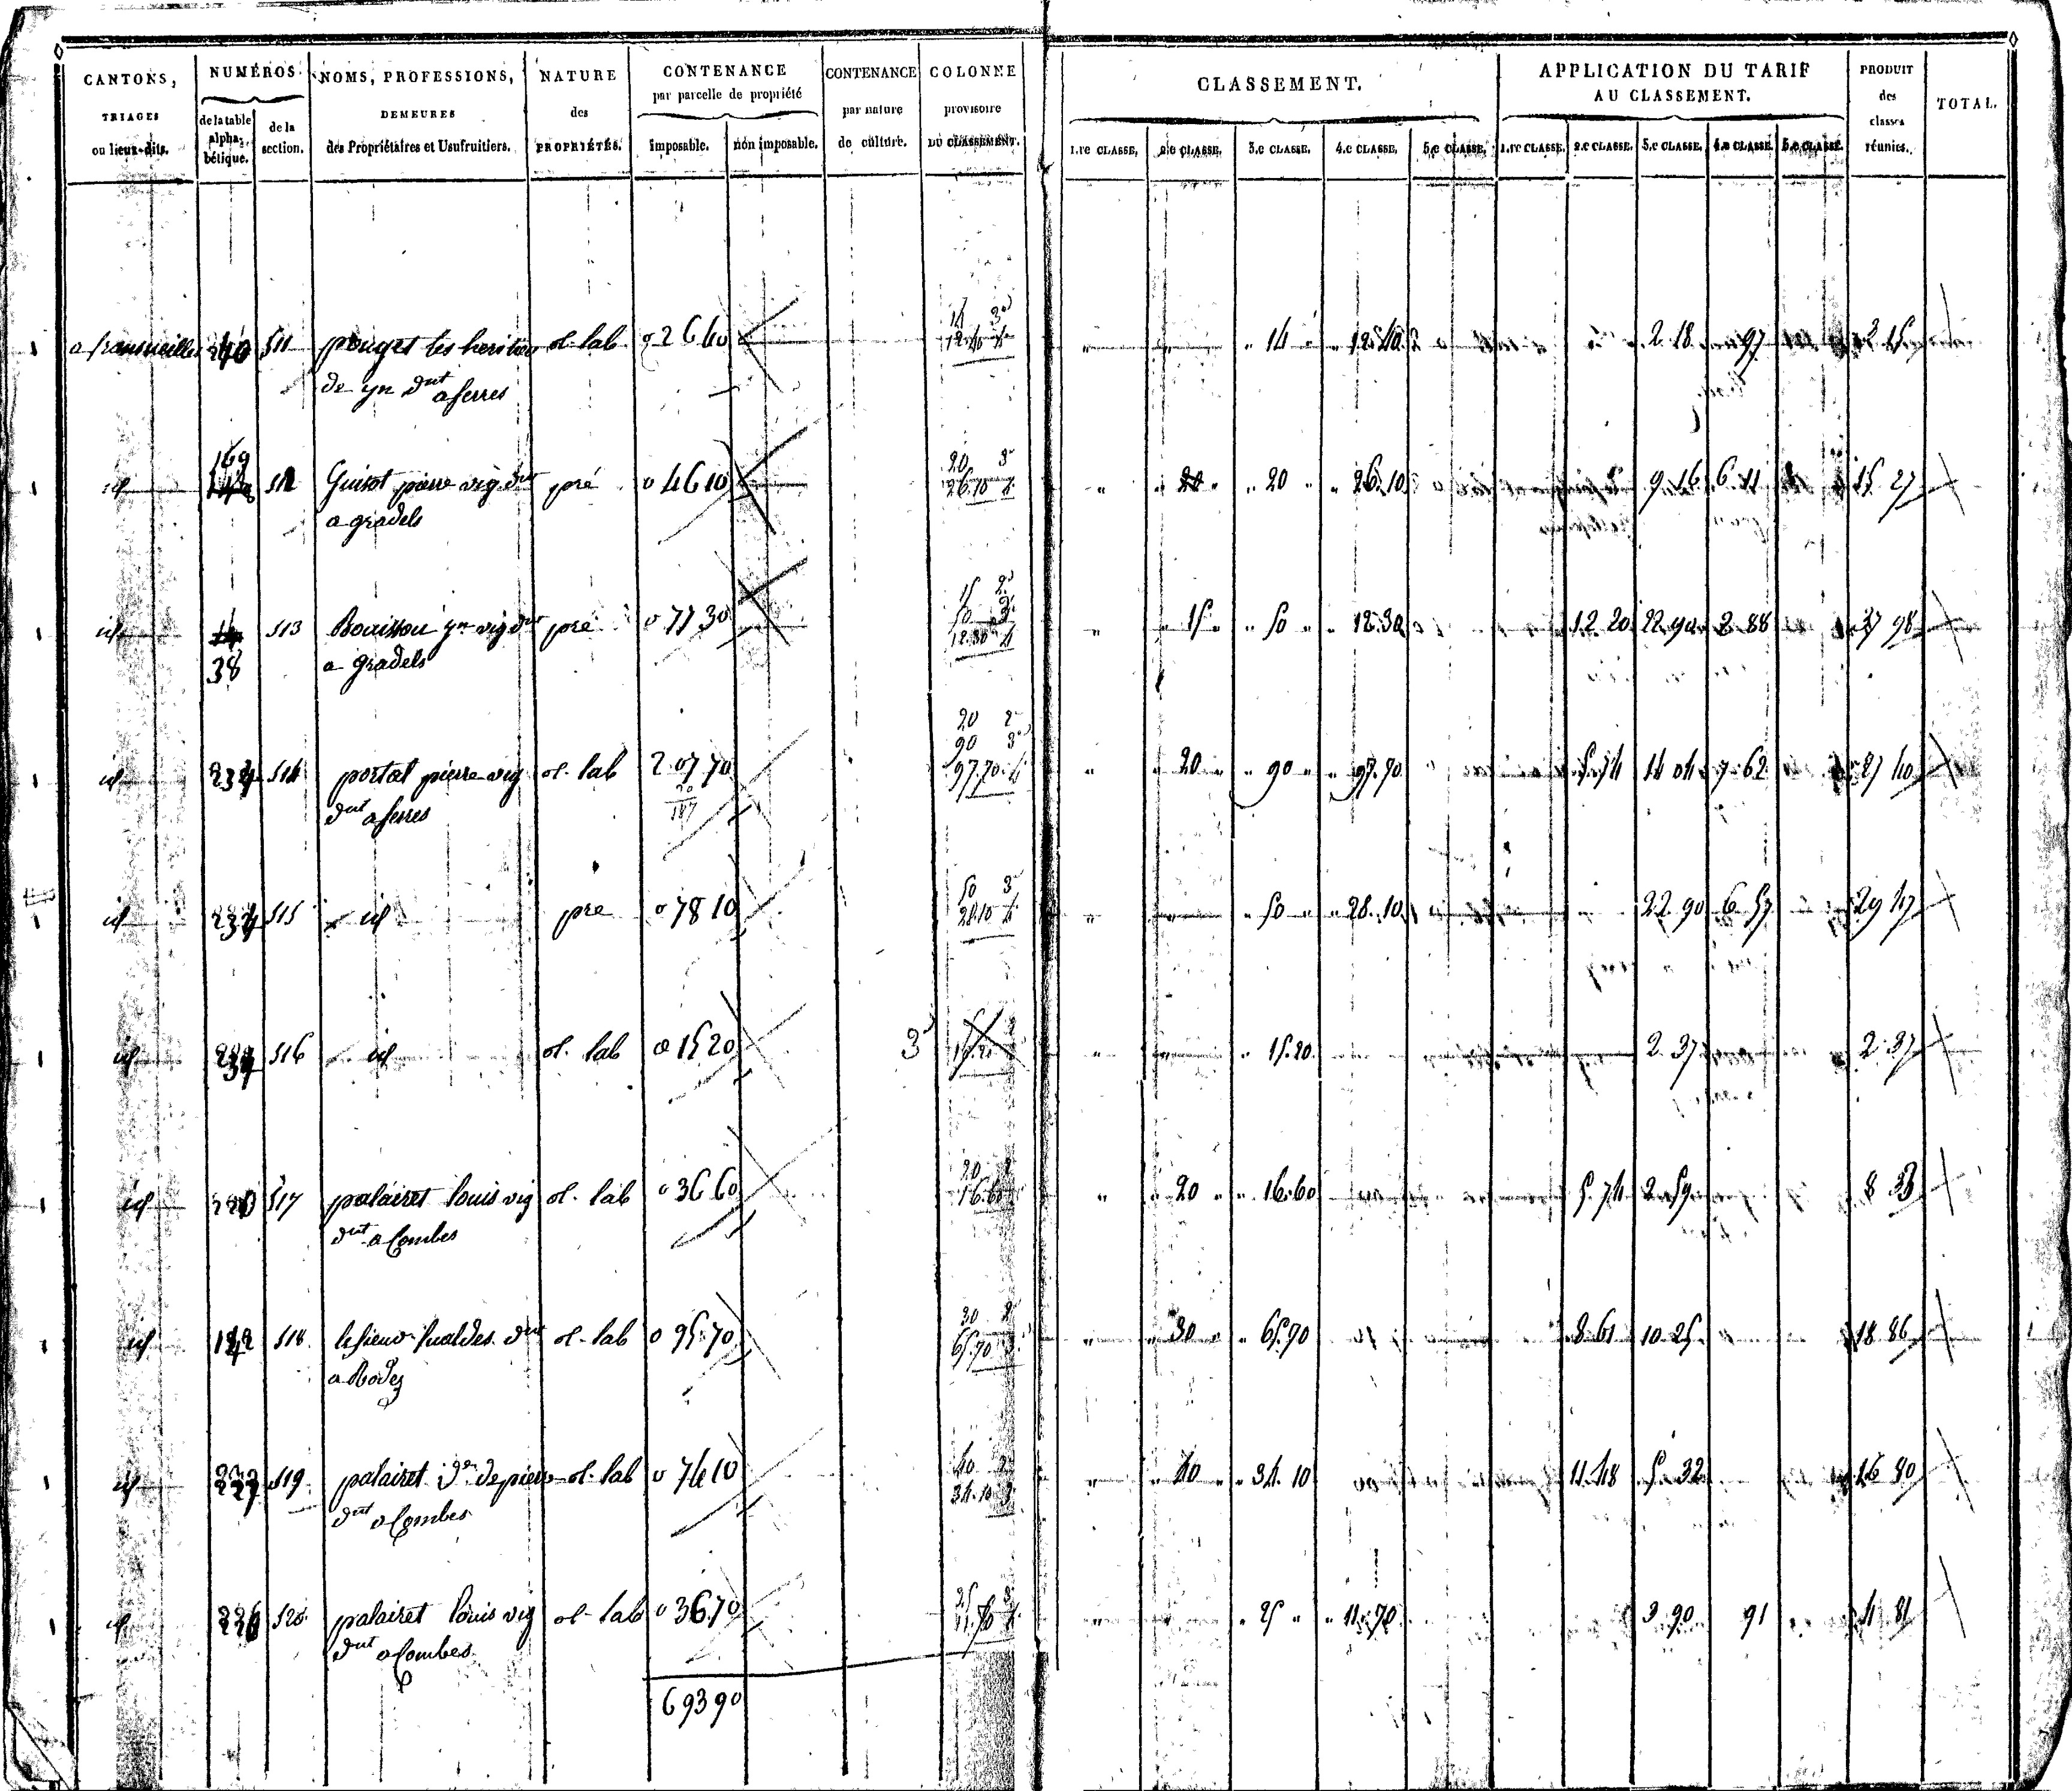 CANTONS, TRIAGES ou lieux-dits.
NUMÉROS de la table alphabétique. de la section.
NOMS, PROFESSIONS, DEMEURES des Propriétaires et Usufruitiers.
NATURE des PROPRIÉTÉS.
CONTENANCE par parcelle de propriété imposable. non imposable.
CONTENANCE par nature de culture.
COLONNE provisoire DU CLASSEMENT.
CLASSEMENT.
1.re CLASSE, 2.e CLASSE, 3.e CLASSE, 4.e CLASSE, 5.e CLASSE,
APPLICATION DU TARIF AU CLASSEMENT.
1.re CLASSE, 2.e CLASSE, 3.e CLASSE, 4.e CLASSE, 5.e CLASSE.
PRODUIT des classes réunies.
TOTAL.
511 pouget les heritiers ol. lab 0 26 40 14 3e 12.40 4e " 14 " " 12.40 2.18 97 3 15
de yn dnt a ferres
id 169 512 Guisot pierre vig. dnt pré 0 46 10 20 3e 26.10 4 " 20 " " 26.10 9.16 6.11 15 27
a gradels
id 513 Bouissou yn vig dnt pré 0 77 30 15 2e 50 3e 12.30 4 " 15 " " 50 " " 12.30 12 20 22 90 2 88 37 98
38 a gradels
id 234 514 portal pierre vig ol. lab 2 07 70 20 2e 90 3e 97.70 4 " 20 " " 90 " " 97.70 5.74 14 04 7 62 27 40
dnt a ferres 20 187
id 234 515 id pre 0 78 10 50 3e 28.10 4 " 50 " " 28.10 22 90 6 57 29 47
id 234 516 id ol. lab 0 15 20 3e 15.20 " 15.20 2 37 2.37
id 517 palairet louis vig ol. lab 0 36 60 20 2 16.60 " 20 " " 16.60 5.74 2.59 8 33
dnt a Combes
id 142 518 le sieur fualdes dnt ol. lab 0 95.70 30 2 65.70 3 " 30 " " 65.70 8.61 10.25 18 86
a Rodez
id 227 519 palairet Jn de pierre ol. lab 0 74 10 40 2 34.10 3 " 40 " " 34.10 11.48 5.32 16 80
dnt a Combes
id 226 520 palairet louis vig ol. lab 0 36.70 25 3 11.70 4 " 25 " " 11.70 3.90 91 4 81
dnt a Combes
6 93 90